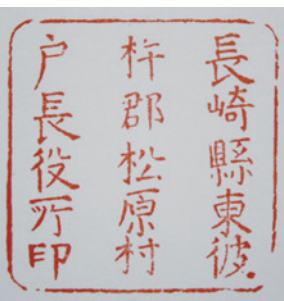 長崎縣東彼
杵郡松原村
戸長役所印